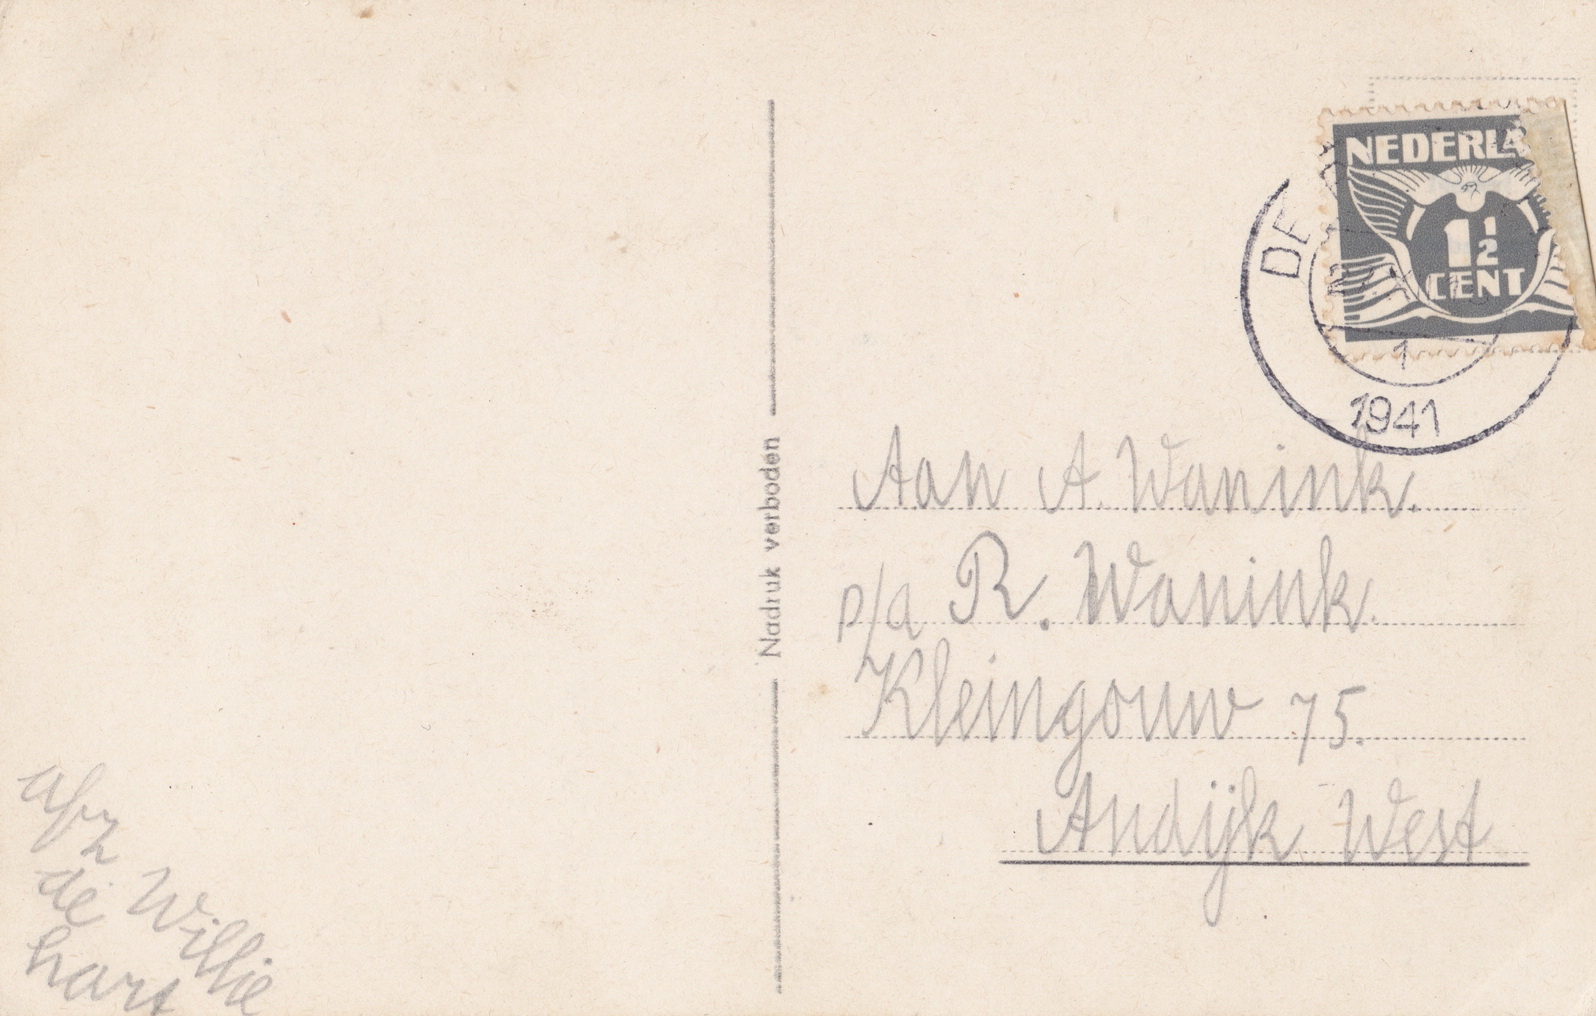 NEDERLA
1½
CENT
DE
1
1941
Nadruk verboden
Aan A. Wanink.
p/a R. Wanink.
Kleingouw 75.
Andijk West
afz Willie
de
hart